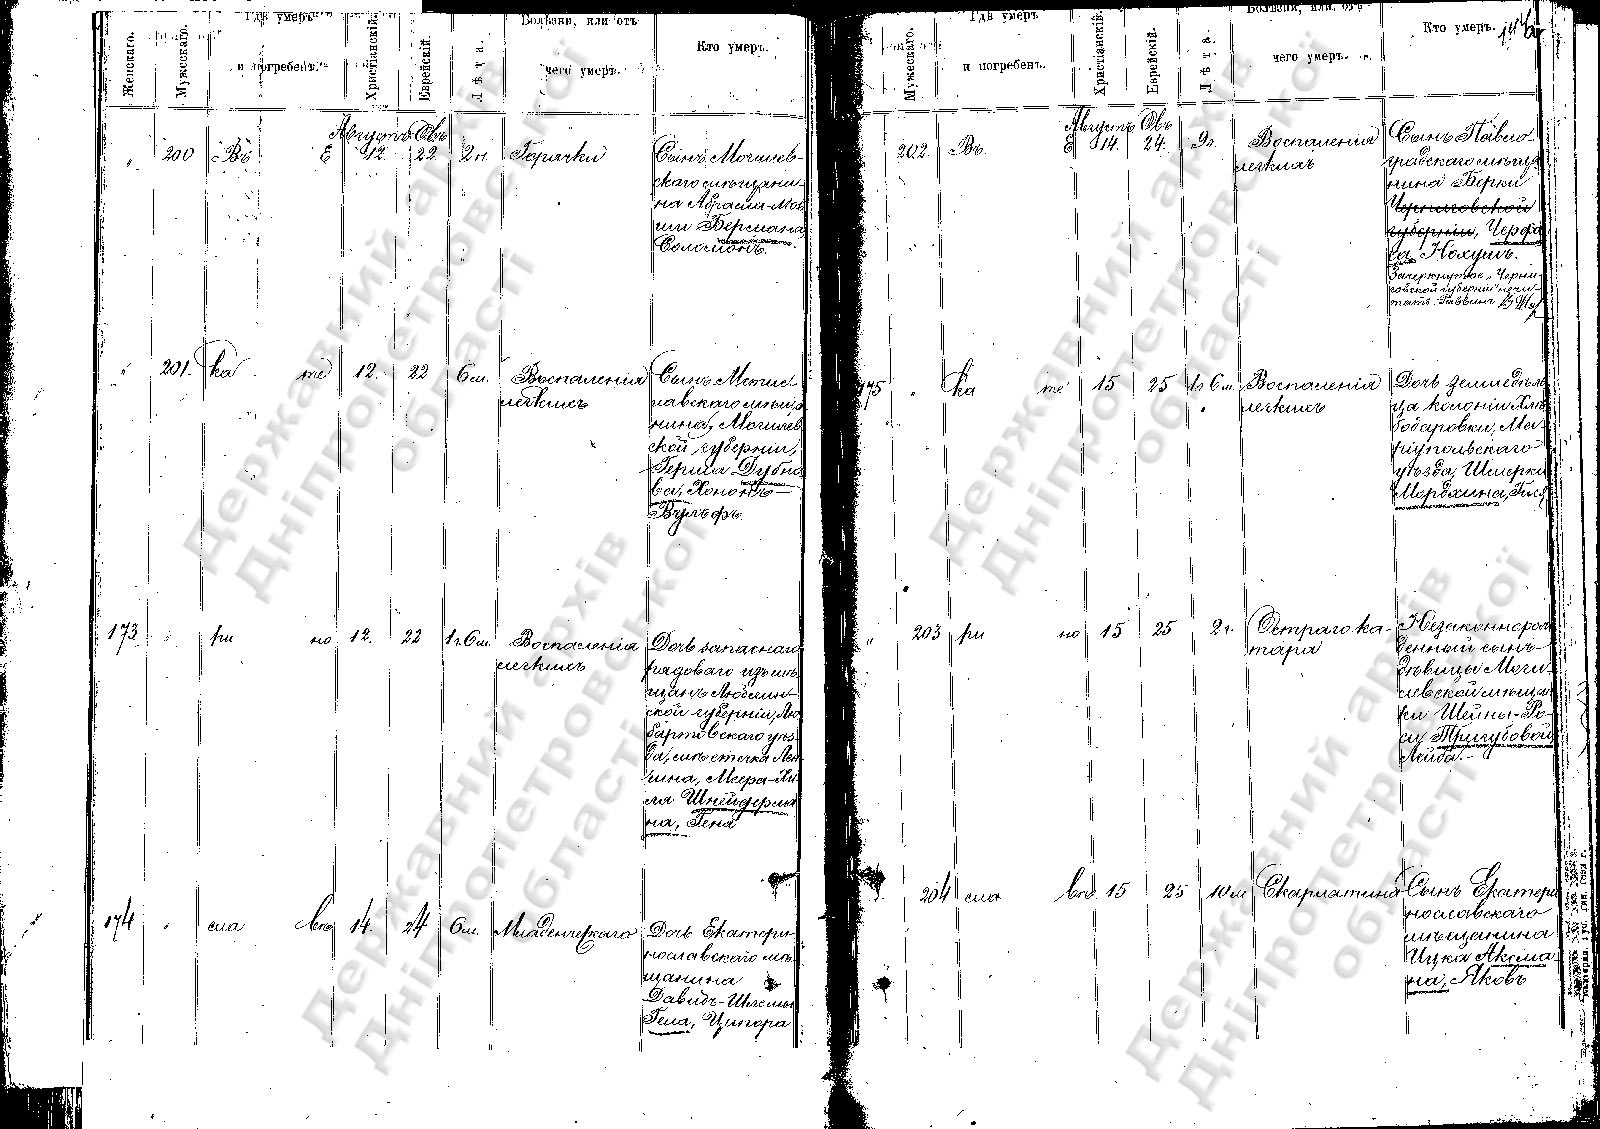 Женскаго.
Мужескаго.
Гдѣ умеръ
и погребенъ.
Христіанскій.
Еврейскій.
Лѣта.
Болѣзни, или отъ
чего умеръ.
Кто умеръ.
Августъ Овъ
" 200 Въ Е 12. 22. 2 н. Горячки
Сынъ Могилев-
скаго мѣщани-
на Абрама-Мов-
ши Бермана,
Соломонъ.
" 201. ка те 12. 22 6 м. Воспаленія
легкихъ
Сынъ Мстис-
лавскаго мѣща
нина, Могилев
ской губерніи,
Герша Дубно
ва, Хононъ-
Вульфъ
173 " ри но 12. 22 1 г. 6 м. Воспаленія
легкихъ
Дочь запаснаго
рядоваго изъ мѣ
щанъ Люблин-
ской губерніи, Лю
бартовскаго уѣз-
да, мѣстечка Лен
чина, Меера-Хи
ля Шнейдерма
на, Гена
174 " сла вѣ 14. 24 6 м. Младенческаго
Дочь Екатери
нославскаго мѣ
щанина
Давидъ-Шлемы
Гела, Ципора
Мужескаго.
Гдѣ умеръ
и погребенъ.
Христіанскій.
Еврейскій.
Лѣта.
Болѣзни, или отъ
чего умеръ.
Кто умеръ.
Августъ Овъ
202. Въ Е 14. 24. 9 г. Воспаленія
легкихъ
Сынъ Павло-
градскаго мѣща
нина Берки
Черниговской
губерніи, Черфа
са, Нохумъ.
Зачеркнутое "Черни-
говской губерніи" не чи-
тать. Раввинъ
175 " ка те 15 25 1 г 6 м. Воспаленія
легкихъ
Дочь земледѣль
ца колоніи Хлѣ
бодаровки, Ма-
ріупольскаго
уѣзда, Шмерки
Мордхина, Гися
" 203 ри но 15 25 2 г. Остраго ка-
тара
Незаконнорож
денный сынъ
дѣвицы Моги-
левской мѣщан
ки Шейны-Ро-
си Тригубовой
Лейба.
204 сла вѣ 15 25 10 м Скарлатина
Сынъ Екатери
нославскаго
мѣщанина
Ицка Аксма
на, Яковъ
Державний архів
Дніпропетровської
області